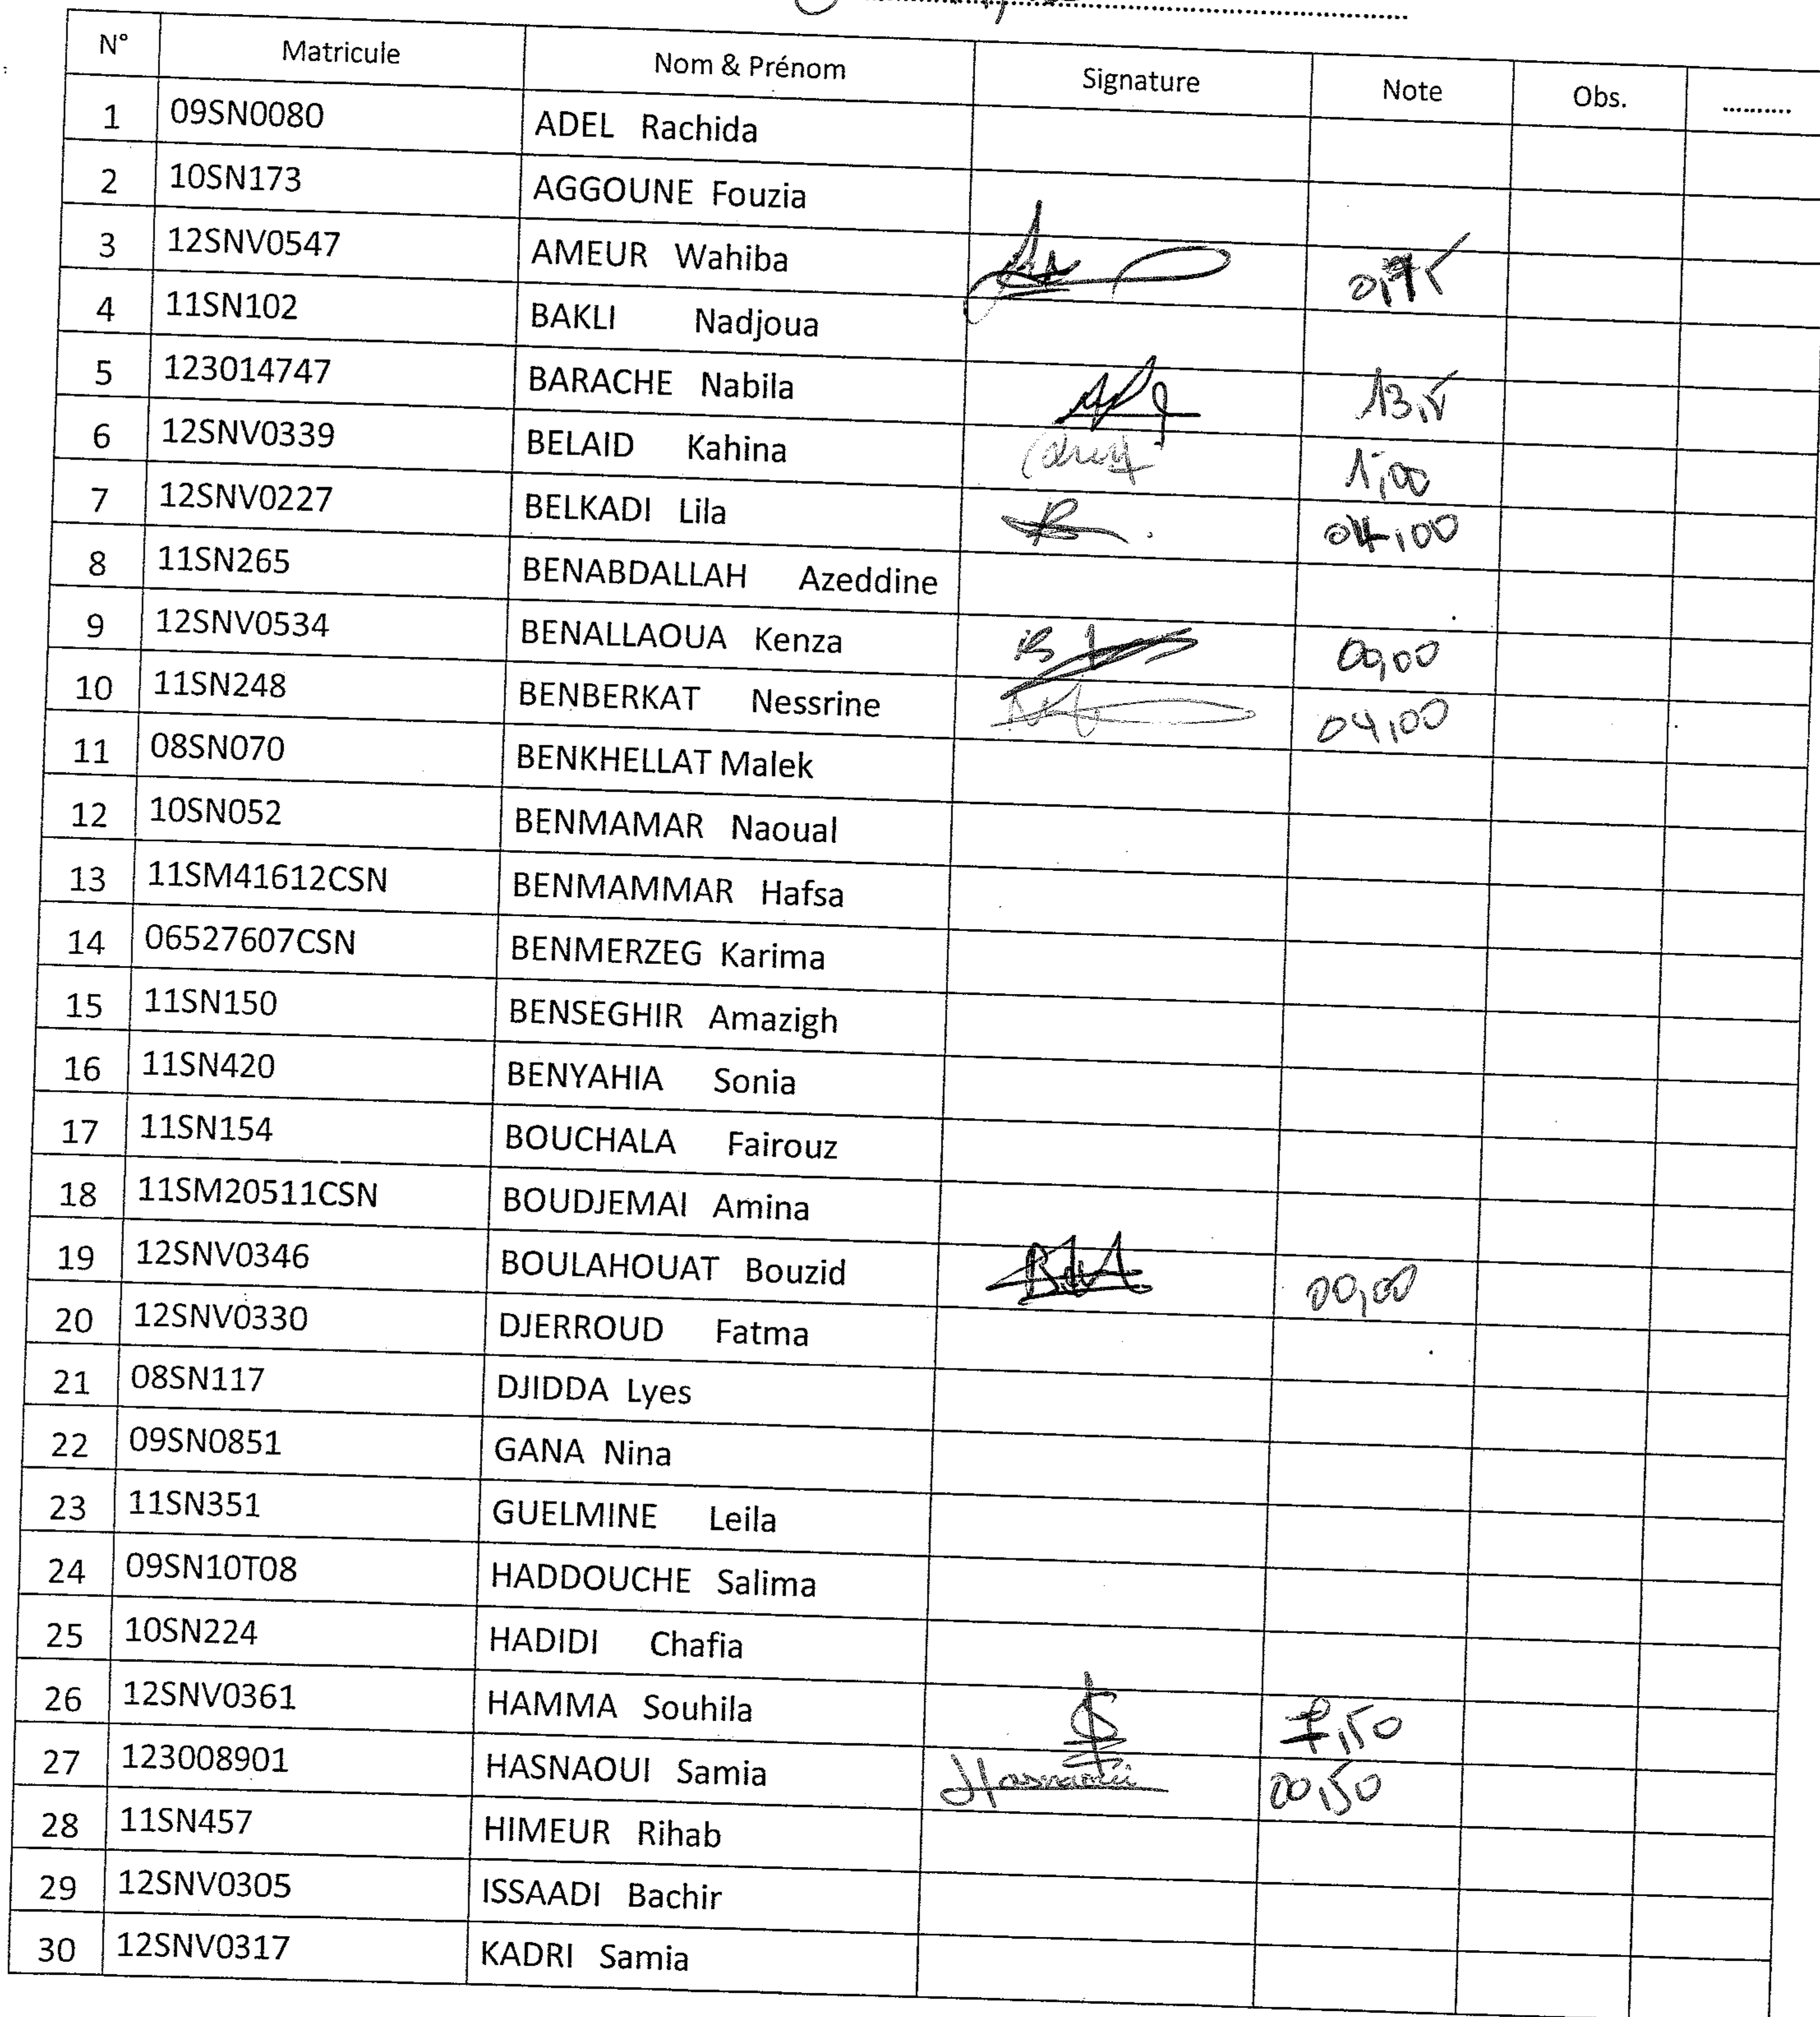 N° Matricule Nom & Prénom Signature Note Obs. ..........
1 09SN0080 ADEL Rachida
2 10SN173 AGGOUNE Fouzia
3 12SNV0547 AMEUR Wahiba 0,75
4 11SN102 BAKLI Nadjoua
5 123014747 BARACHE Nabila 13,5
6 12SNV0339 BELAID Kahina 1,00
7 12SNV0227 BELKADI Lila 04,00
8 11SN265 BENABDALLAH Azeddine
9 12SNV0534 BENALLAOUA Kenza 00,00
10 11SN248 BENBERKAT Nessrine 04,00
11 08SN070 BENKHELLAT Malek
12 10SN052 BENMAMAR Naoual
13 11SM41612CSN BENMAMMAR Hafsa
14 06527607CSN BENMERZEG Karima
15 11SN150 BENSEGHIR Amazigh
16 11SN420 BENYAHIA Sonia
17 11SN154 BOUCHALA Fairouz
18 11SM20511CSN BOUDJEMAI Amina
19 12SNV0346 BOULAHOUAT Bouzid 00,00
20 12SNV0330 DJERROUD Fatma
21 08SN117 DJIDDA Lyes
22 09SN0851 GANA Nina
23 11SN351 GUELMINE Leila
24 09SN10T08 HADDOUCHE Salima
25 10SN224 HADIDI Chafia
26 12SNV0361 HAMMA Souhila 7,50
27 123008901 HASNAOUI Samia Hasnaoui 00,50
28 11SN457 HIMEUR Rihab
29 12SNV0305 ISSAADI Bachir
30 12SNV0317 KADRI Samia